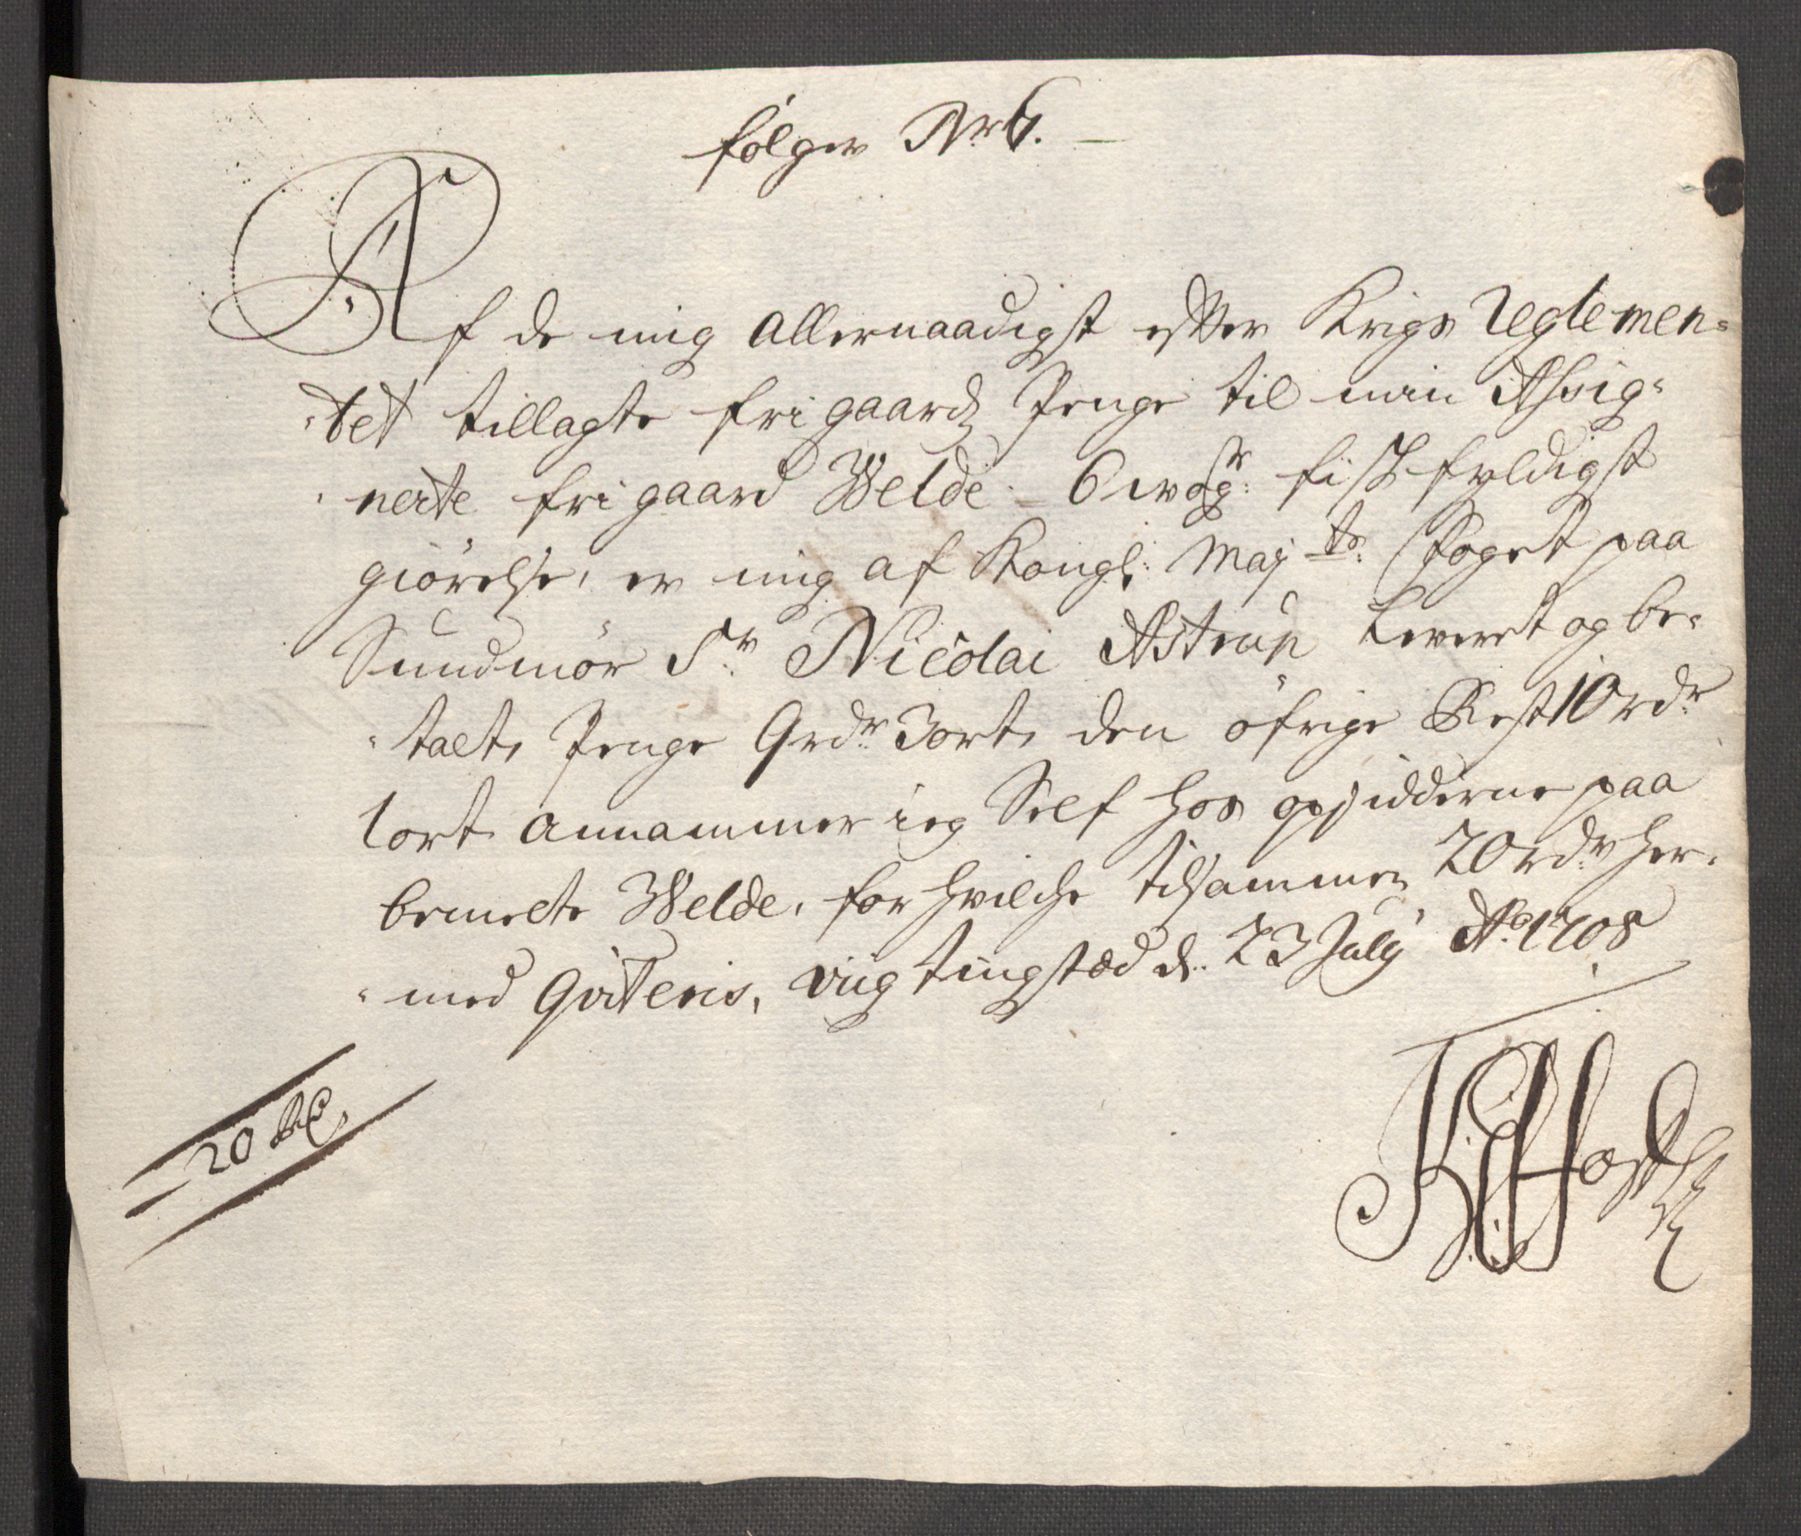 følger Nr 6.
Af de mig allernaadigst efter Krigs Reglemen=
=tet tillagte frigaards Penge til min Assig=
nerte frigaard Welde 6 wogr: fisk fyldigst
giørelse, er mig af Kongl: Maj ts: foget paa
Sundmør Sr Nicolai Astrup Leveret og be=
=talt, Penge 9 rdr 3 ort, den öfrige Rest 10 rdr
1 ort annammer ieg Self hos opsidderne paa
bemelte Welde, for hvilche tilsammen 20 rdr her=
=med qviteris, Viig tingstæd d: 23 July Ao 1708
20 Rd